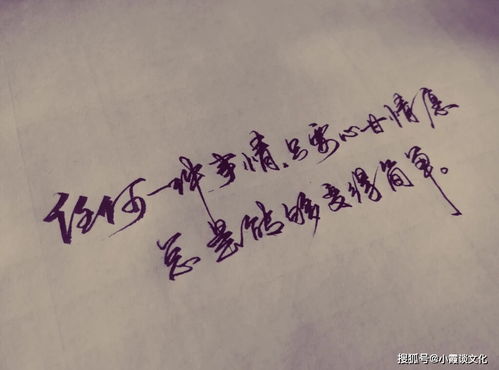 任何一件事情,只要心甘情愿
总是能够变得简单。
搜狐号@小霞谈文化